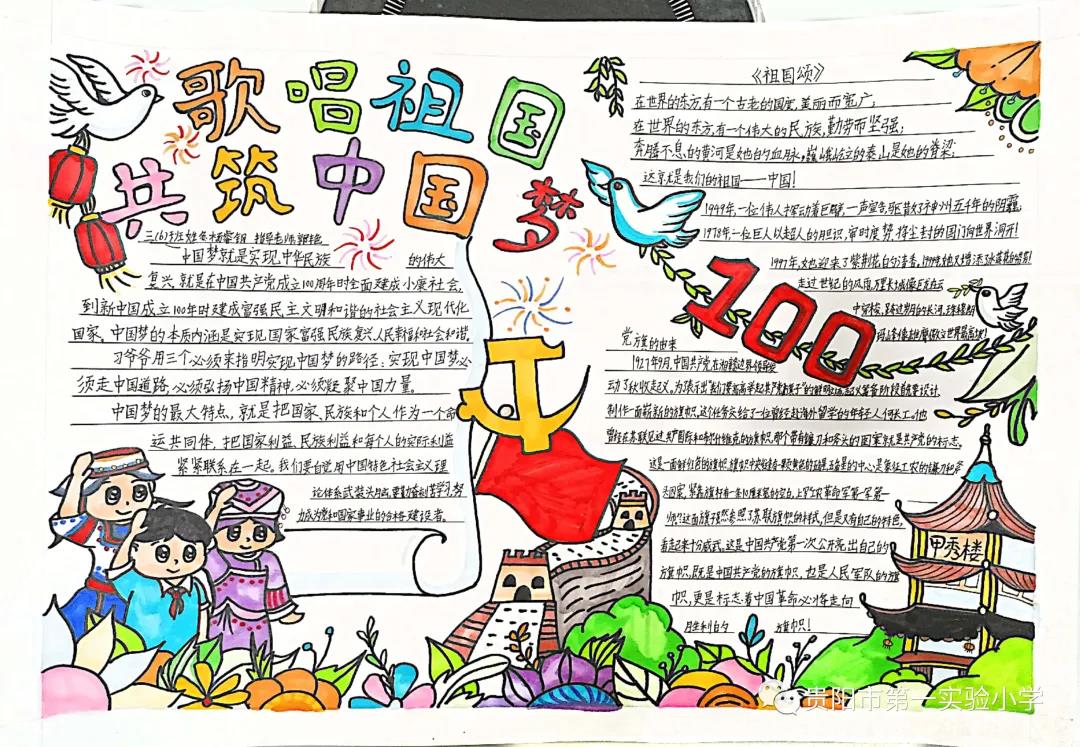 歌唱祖国
共筑中国梦
中国梦就是实现中华民族
的伟大
复兴,就是在中国共产党成立100周年时全面建成小康社会,
到新中国成立100年时建成富强民主文明和谐的社会主义现代化
国家。中国梦的本质内涵是实现国家富强民族复兴人民幸福和社会和谐。
习爷爷用三个必须来指明实现中国梦的路径:实现中国梦必
须走中国道路,必须弘扬中国精神,必须凝聚中国力量。
中国梦的最大特点,就是把国家、民族和个人作为一个命
运共同体,把国家利益、民族利益和每个人的实际利益
紧紧联系在一起。我们要自觉用中国特色社会主义理
论体系武装头脑,更勤奋刻苦学习,努
力成为党和国家事业的合格建设者。
《祖国颂》
在世界的东方有一个古老的国度,美丽而宽广;
在世界的东方有一个伟大的民族,勤劳而坚强;
奔腾不息的黄河是她的血脉,巍峨屹立的泰山是她的脊梁;
这就是我们的祖国——中国!
1949年,一位伟人挥动着巨臂,一声宣告,驱散了神州五千年的阴霾;
1978年,一位巨人以超人的胆识,审时度势,将尘封的国门向世界洞开!
1997年,她迎来了紫荆花的清香,
走过世纪的风雨,万里长城像巨龙在
100
党旗的由来
1927年9月,中国共产党在湘赣边界领导发
动了秋收起义。为
制作一面崭新的旗帜。这个任务交给了一位曾经赴海外留学的年轻人何长工。他
那个带有镰刀和斧头的图案就是共产党的标志。
看起来十分威武。这是中国共产党第一次公开亮出自己的
旗帜,既是中国共产党的旗帜,也是人民军队的旗
帜,更是标志着中国革命必将走向
胜利的
旗帜!
甲秀楼
贵阳市第一实验小学